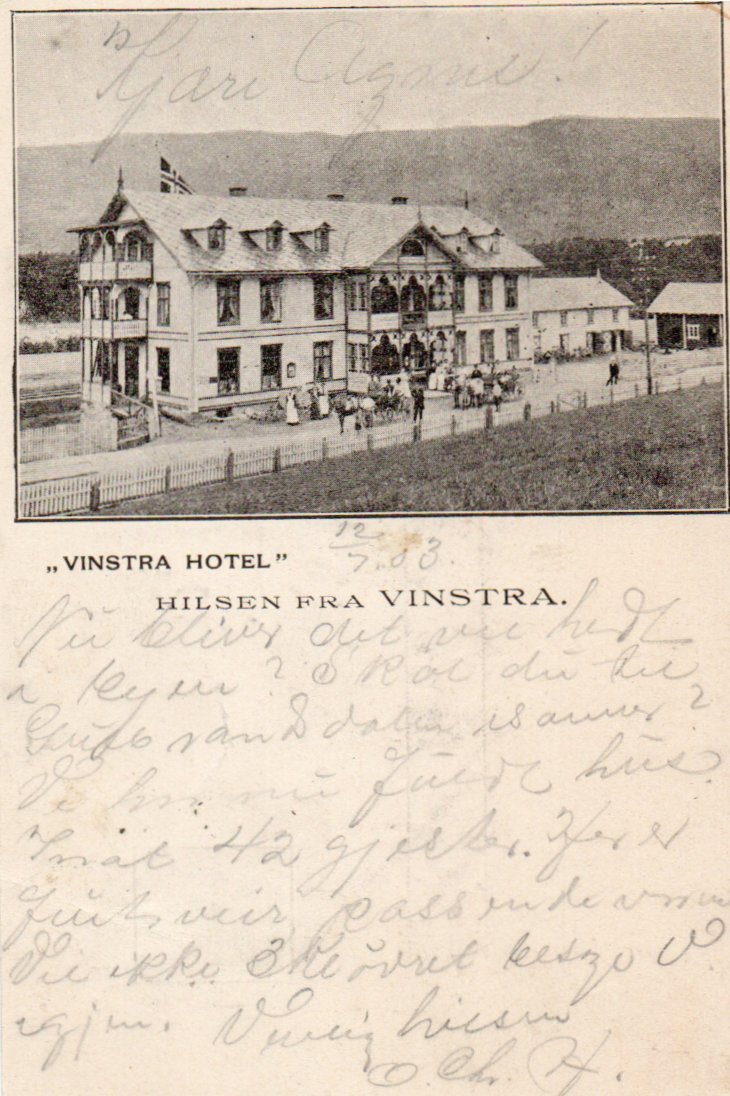 Kjære Agnes!
„VINSTRA HOTEL”
12/7.03.
HILSEN FRA VINSTRA.
Nu bliver det vel hedt
i byen? Skal du til
Gudbrandsdalen isommer?
Vi har nu fuldt hus.
Inat 42 gjester. Her er
fint veir passende varm
Vil ikke besøge V
igjen. Venlig hilsen
O. Chr. H.